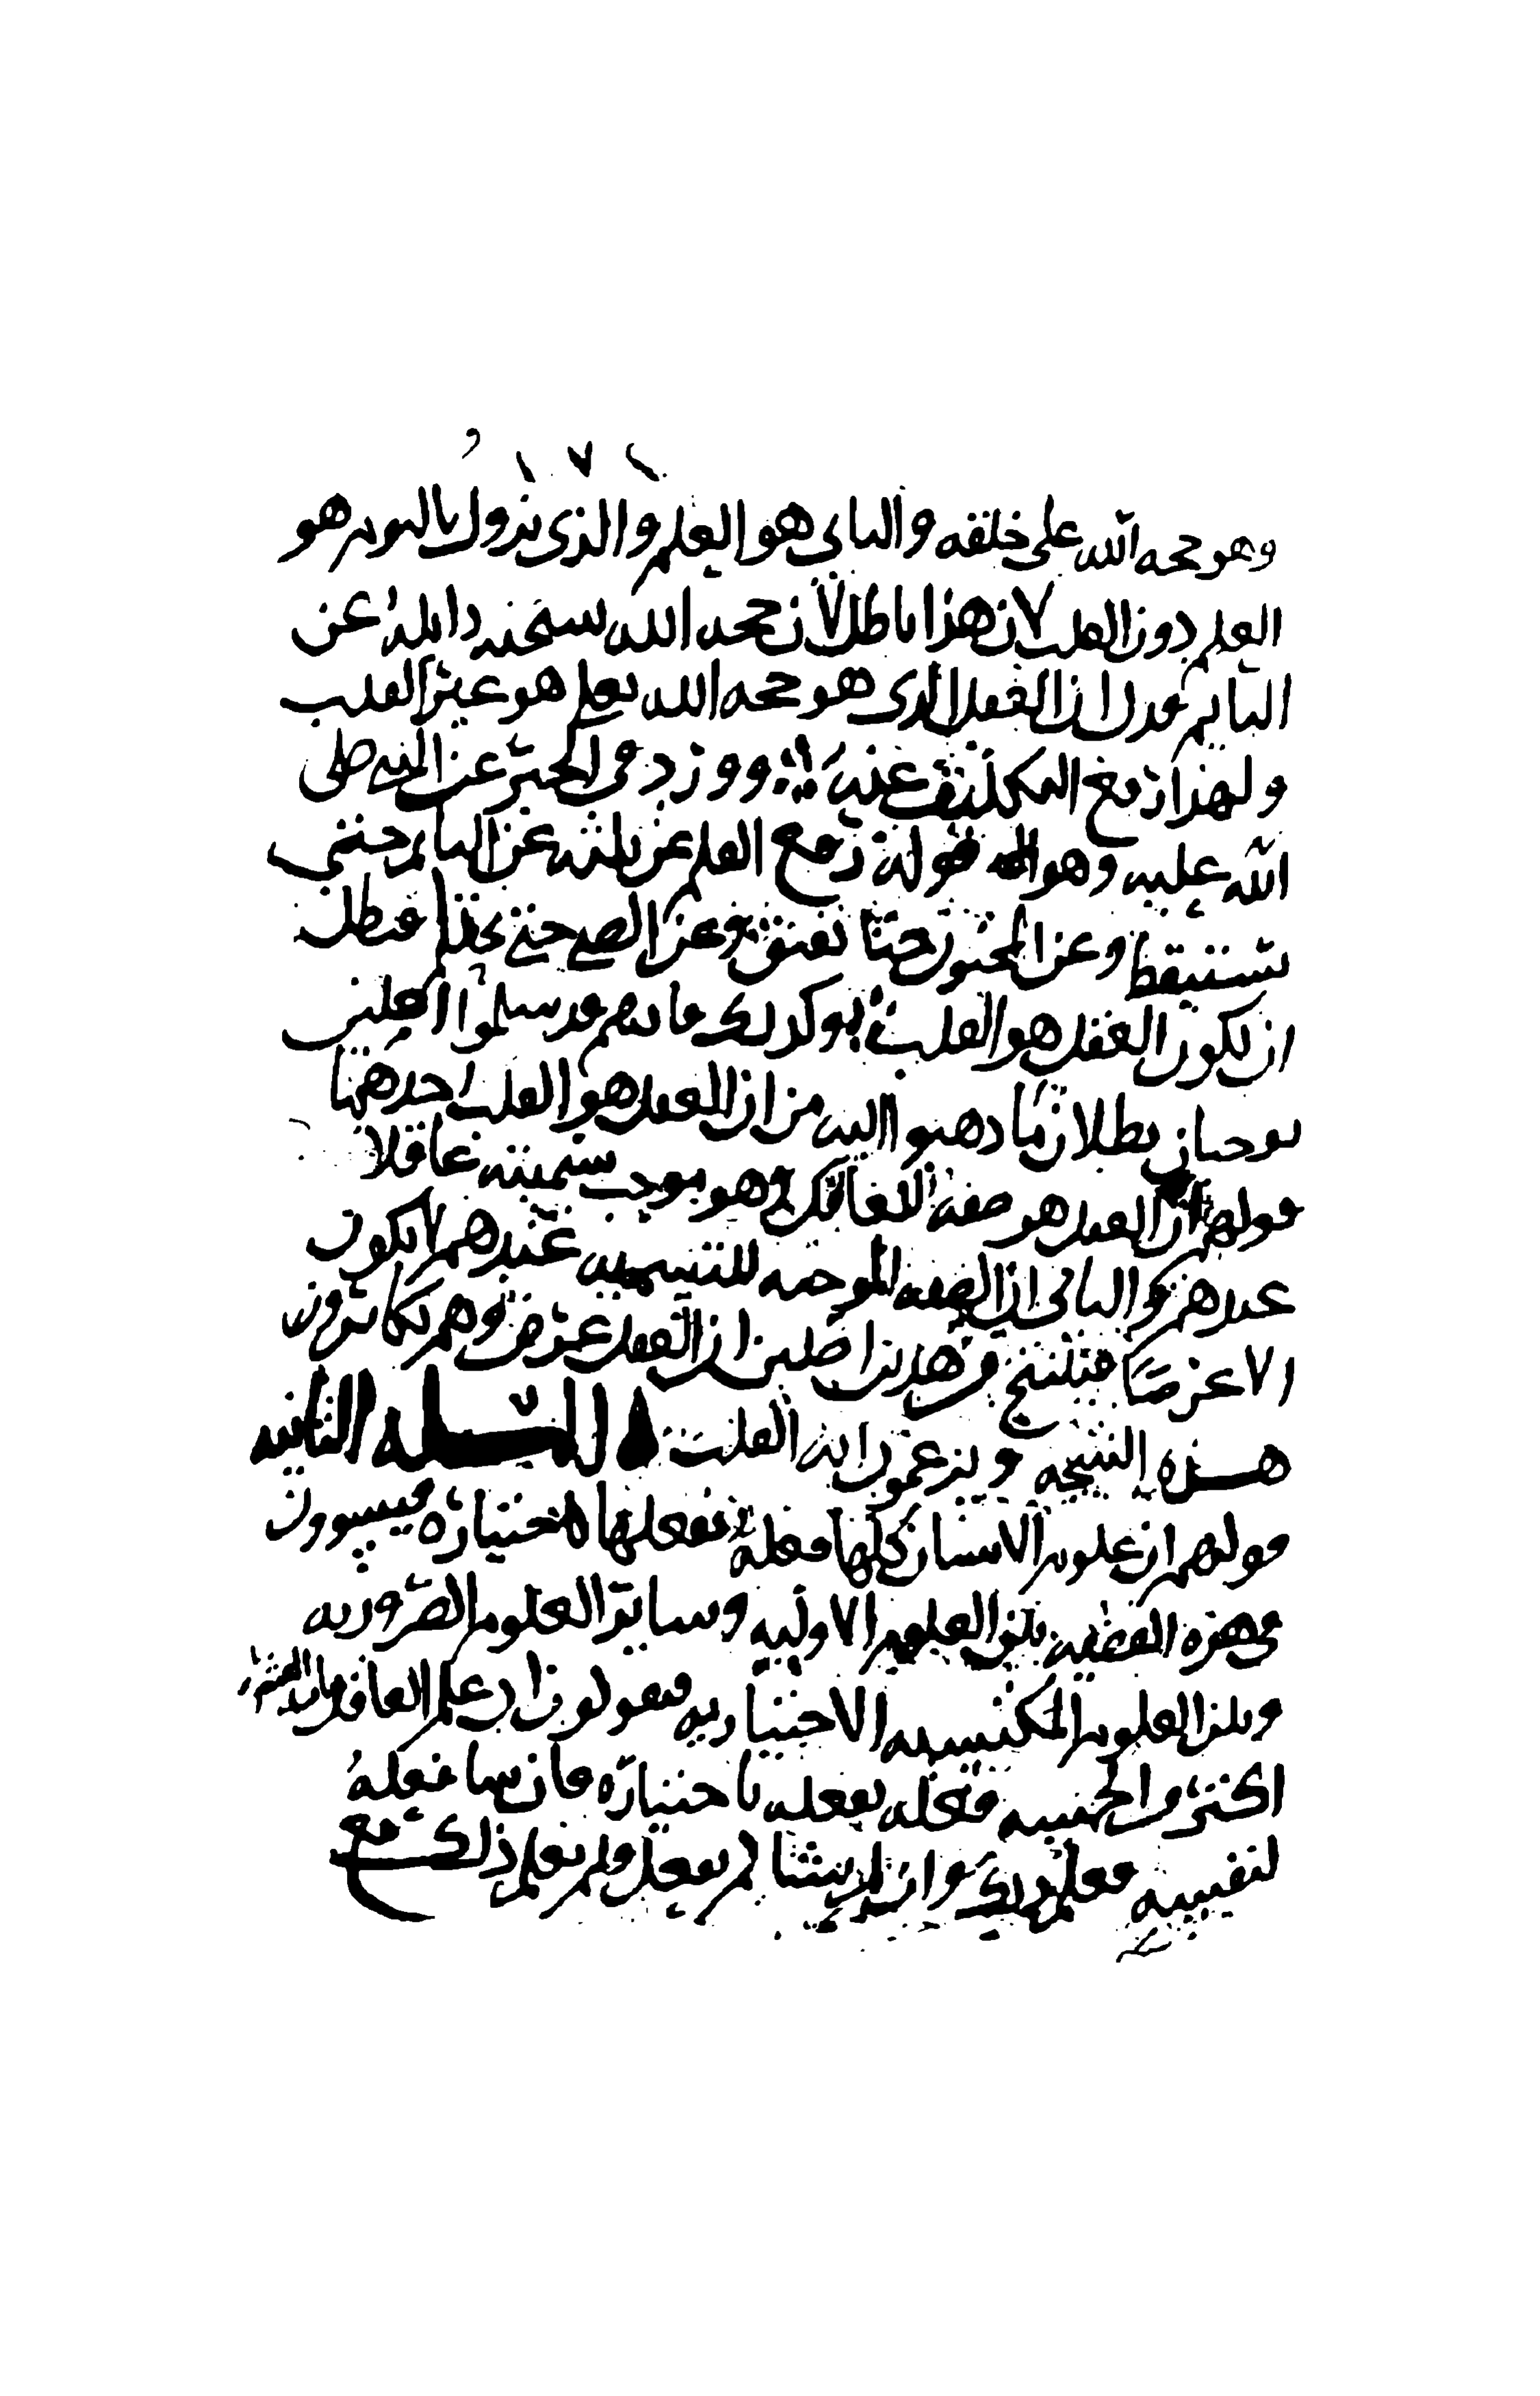 وهو حجه الله على خلقه والباقي هو العلم والذي يزول بالنوم هو
العلم دون القلب لان هذا باطل لان حجه الله سبحنه زايله عن
النايم فدل ان العقل الذي هو حجه الله تعلى هو غير القلب
ولهذا رفع التكليف عنه وورد في الخبر عن النبي صلى
الله عليه وهو قوله رفع القلم عن ثلثه عن النايم حتى
يستيقظ وعن المجنون حتا يفيق وعن الصبي حتى يحتلم فبطل
ان يكون العقل هو القلب يوكد ذلك فانهم قد سلموا اصلين
يوجبان بطلان ما ذهبوا اليه من ان العقل هو القلب احدهما
قولهم ان العقل هو صفه العاقل وهو يوجب تسميته عاقلا
عندهم والثاني ان الصفه الموجبه للتسميه عندهم لا تكون
الا عرضا فتنتج من هذين اصلين ان العقل عرض وهم يكابرون
هذه النتيجه ويزعمون انه القلب المسله الثانيه
قولهم ان علوم الانسان كلها فعله يفعلها باختياره فيسوون
في هذه القضيه بين العلوم الاوليه وساير العلوم الضروريه
وبين العلوم المكتسبه الاختياريه فيقولون ان علم العاقل بان العشره
اكثر من الخمسه فعله يفعله باختياره فان شا فعله
لنفسه فعل ذلك وان لم يشا لم يفعل ولم يعلم ذلك مع